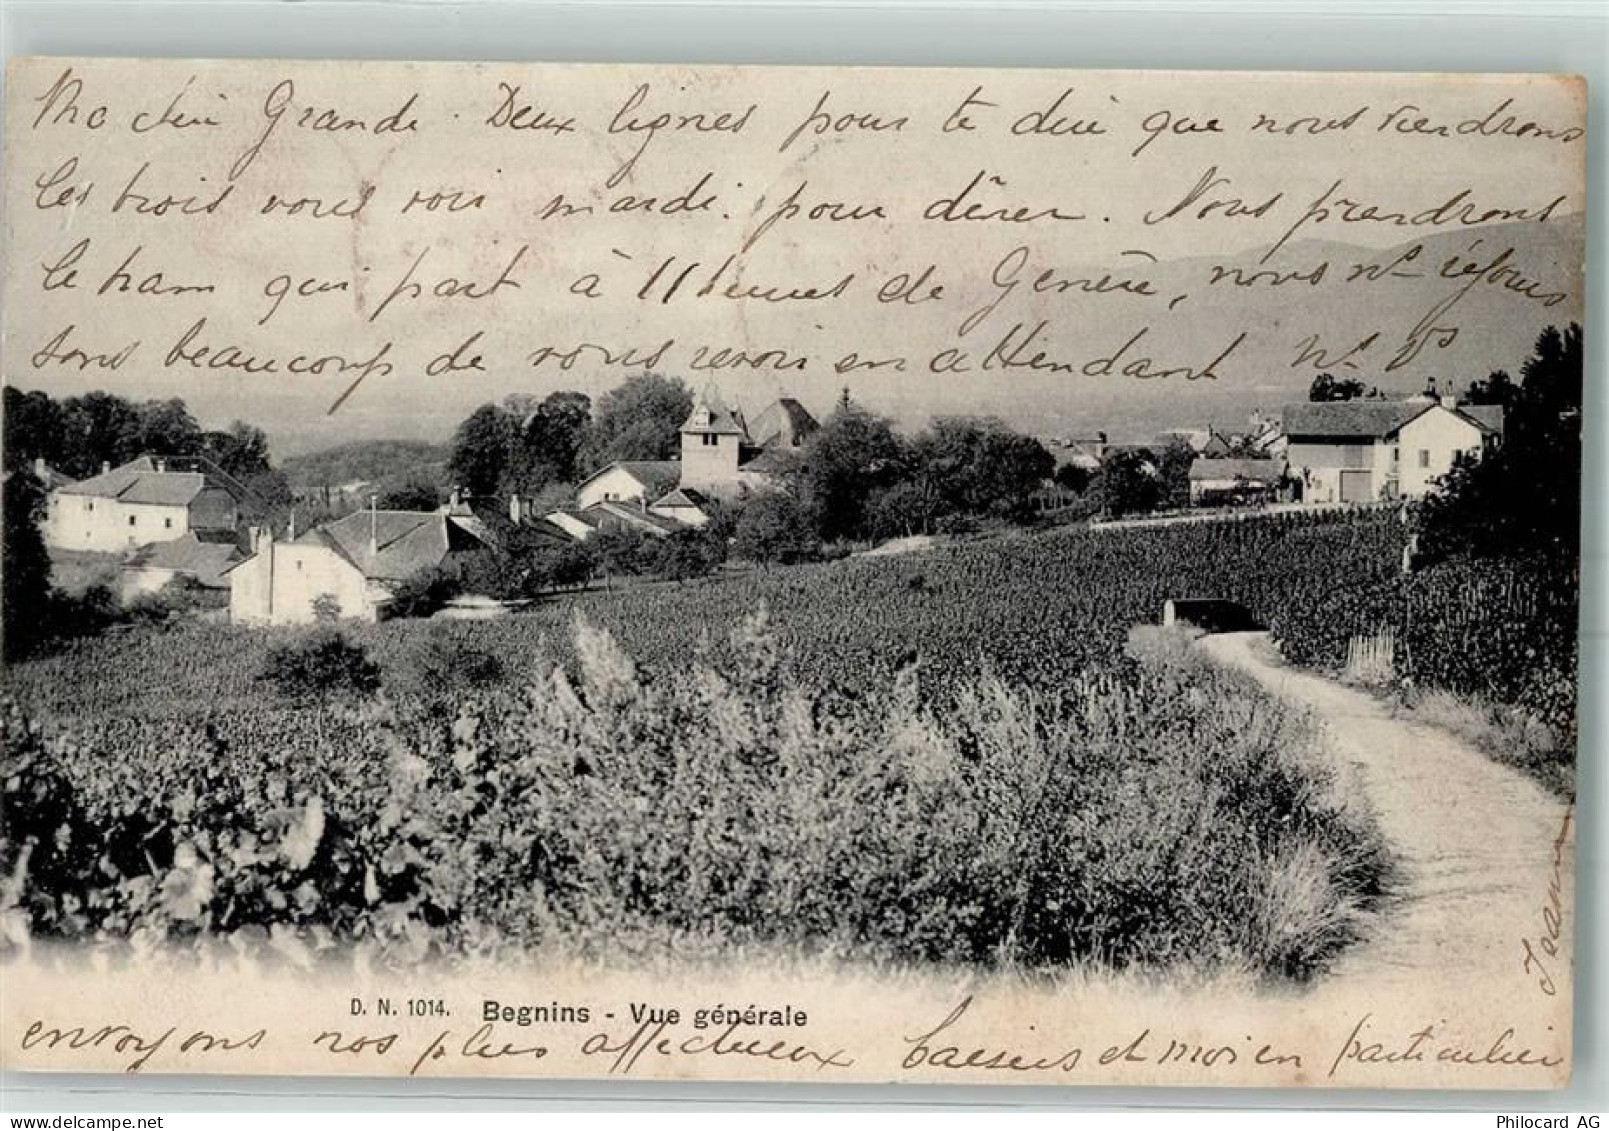 Ma chère Grande. Deux lignes pour te dire que nous viendrons
les trois vous voir mardi. pour dîner. Nous prendrons
le tram qui part à 11 heures de Genève, nous ns réjouis
sons beaucoup de vous revoir en attendant ns vs
envoyons nos plus affectueux baisers et moi en particulier
Jeanne
D. N. 1014. Begnins - Vue générale
Philocard AG